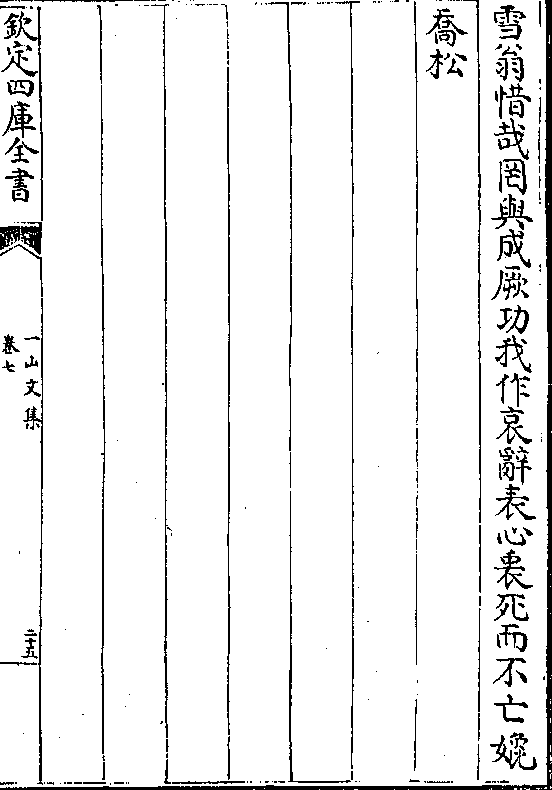 雪翁惜哉罔與成厥功我作哀辭表心衷死而不亡媲
喬松
欽定四庫全書
一山文集
卷七
二十五